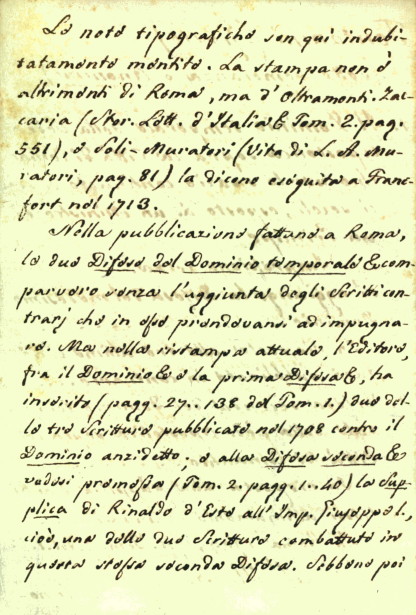 Le note tipografiche son qui indubi-
tatamente mentite. La stampa non è
altrimenti di Roma, ma d'Oltramonti. Zac-
caria (Stor. Lett. d'Italia &c Tom. 2. pag.
551), e Soli-Muratori (Vita di L. A. Mu-
ratori, pag. 81) la dicono eseguita a Franc-
fort nel 1713.
Nella pubblicazione fattane a Roma,
le due Difese del Dominio temporale &c com-
parvero senza l'aggiunta degli Scritti con-
trarj che in esse prendevansi ad impugna-
re. Ma nella ristampa attuale, l'Editore,
fra il Dominio &c e la prima Difesa &c, ha
inserito (pagg. 27..138 del Tom. 1.) due del-
le tre Scritture pubblicate nel 1708 contro il
Dominio anzidetto; e alla Difesa seconda &c
vedesi premessa (Tom. 2. pagg. 1..40) la Sup-
plica di Rinaldo d'Este all'Imp. Giuseppe I.,
cioè, una delle due Scritture combattute in
questa stessa seconda Difesa. Sebbene poi